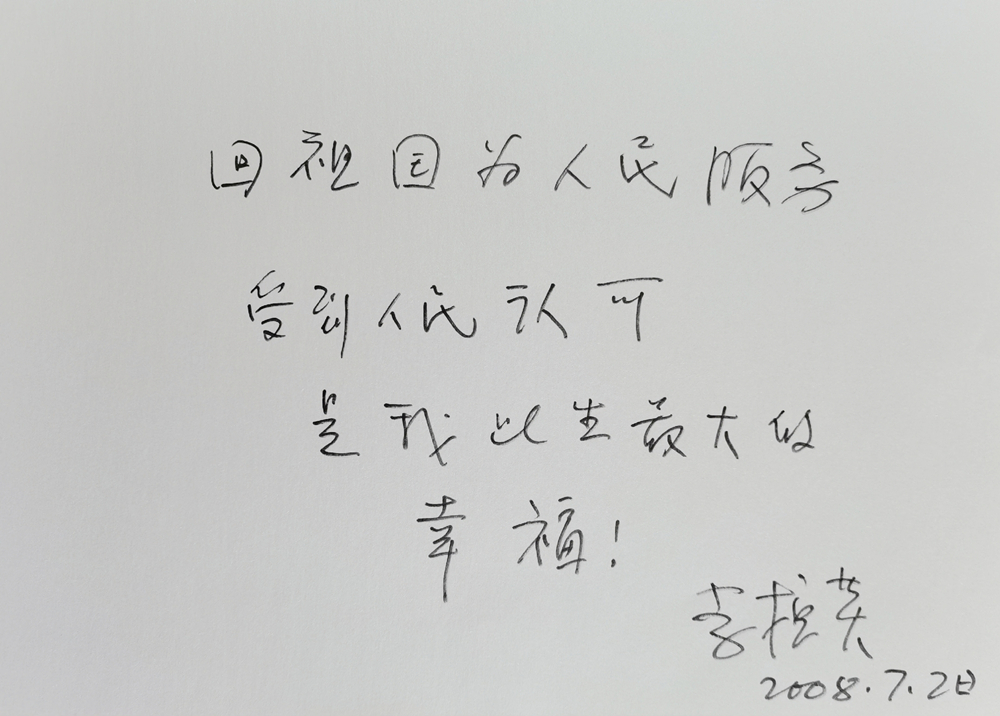 回祖国为人民服务
受到人民认可
是我此生最大的
幸福！
李桓英
2008.7.2日